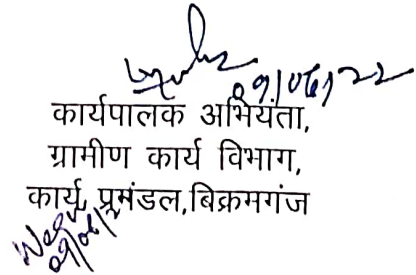 09/06/22
कार्यपालक अभियंता,
ग्रामीण कार्य विभाग,
कार्य प्रमंडल,बिक्रमगंज
09/06/2